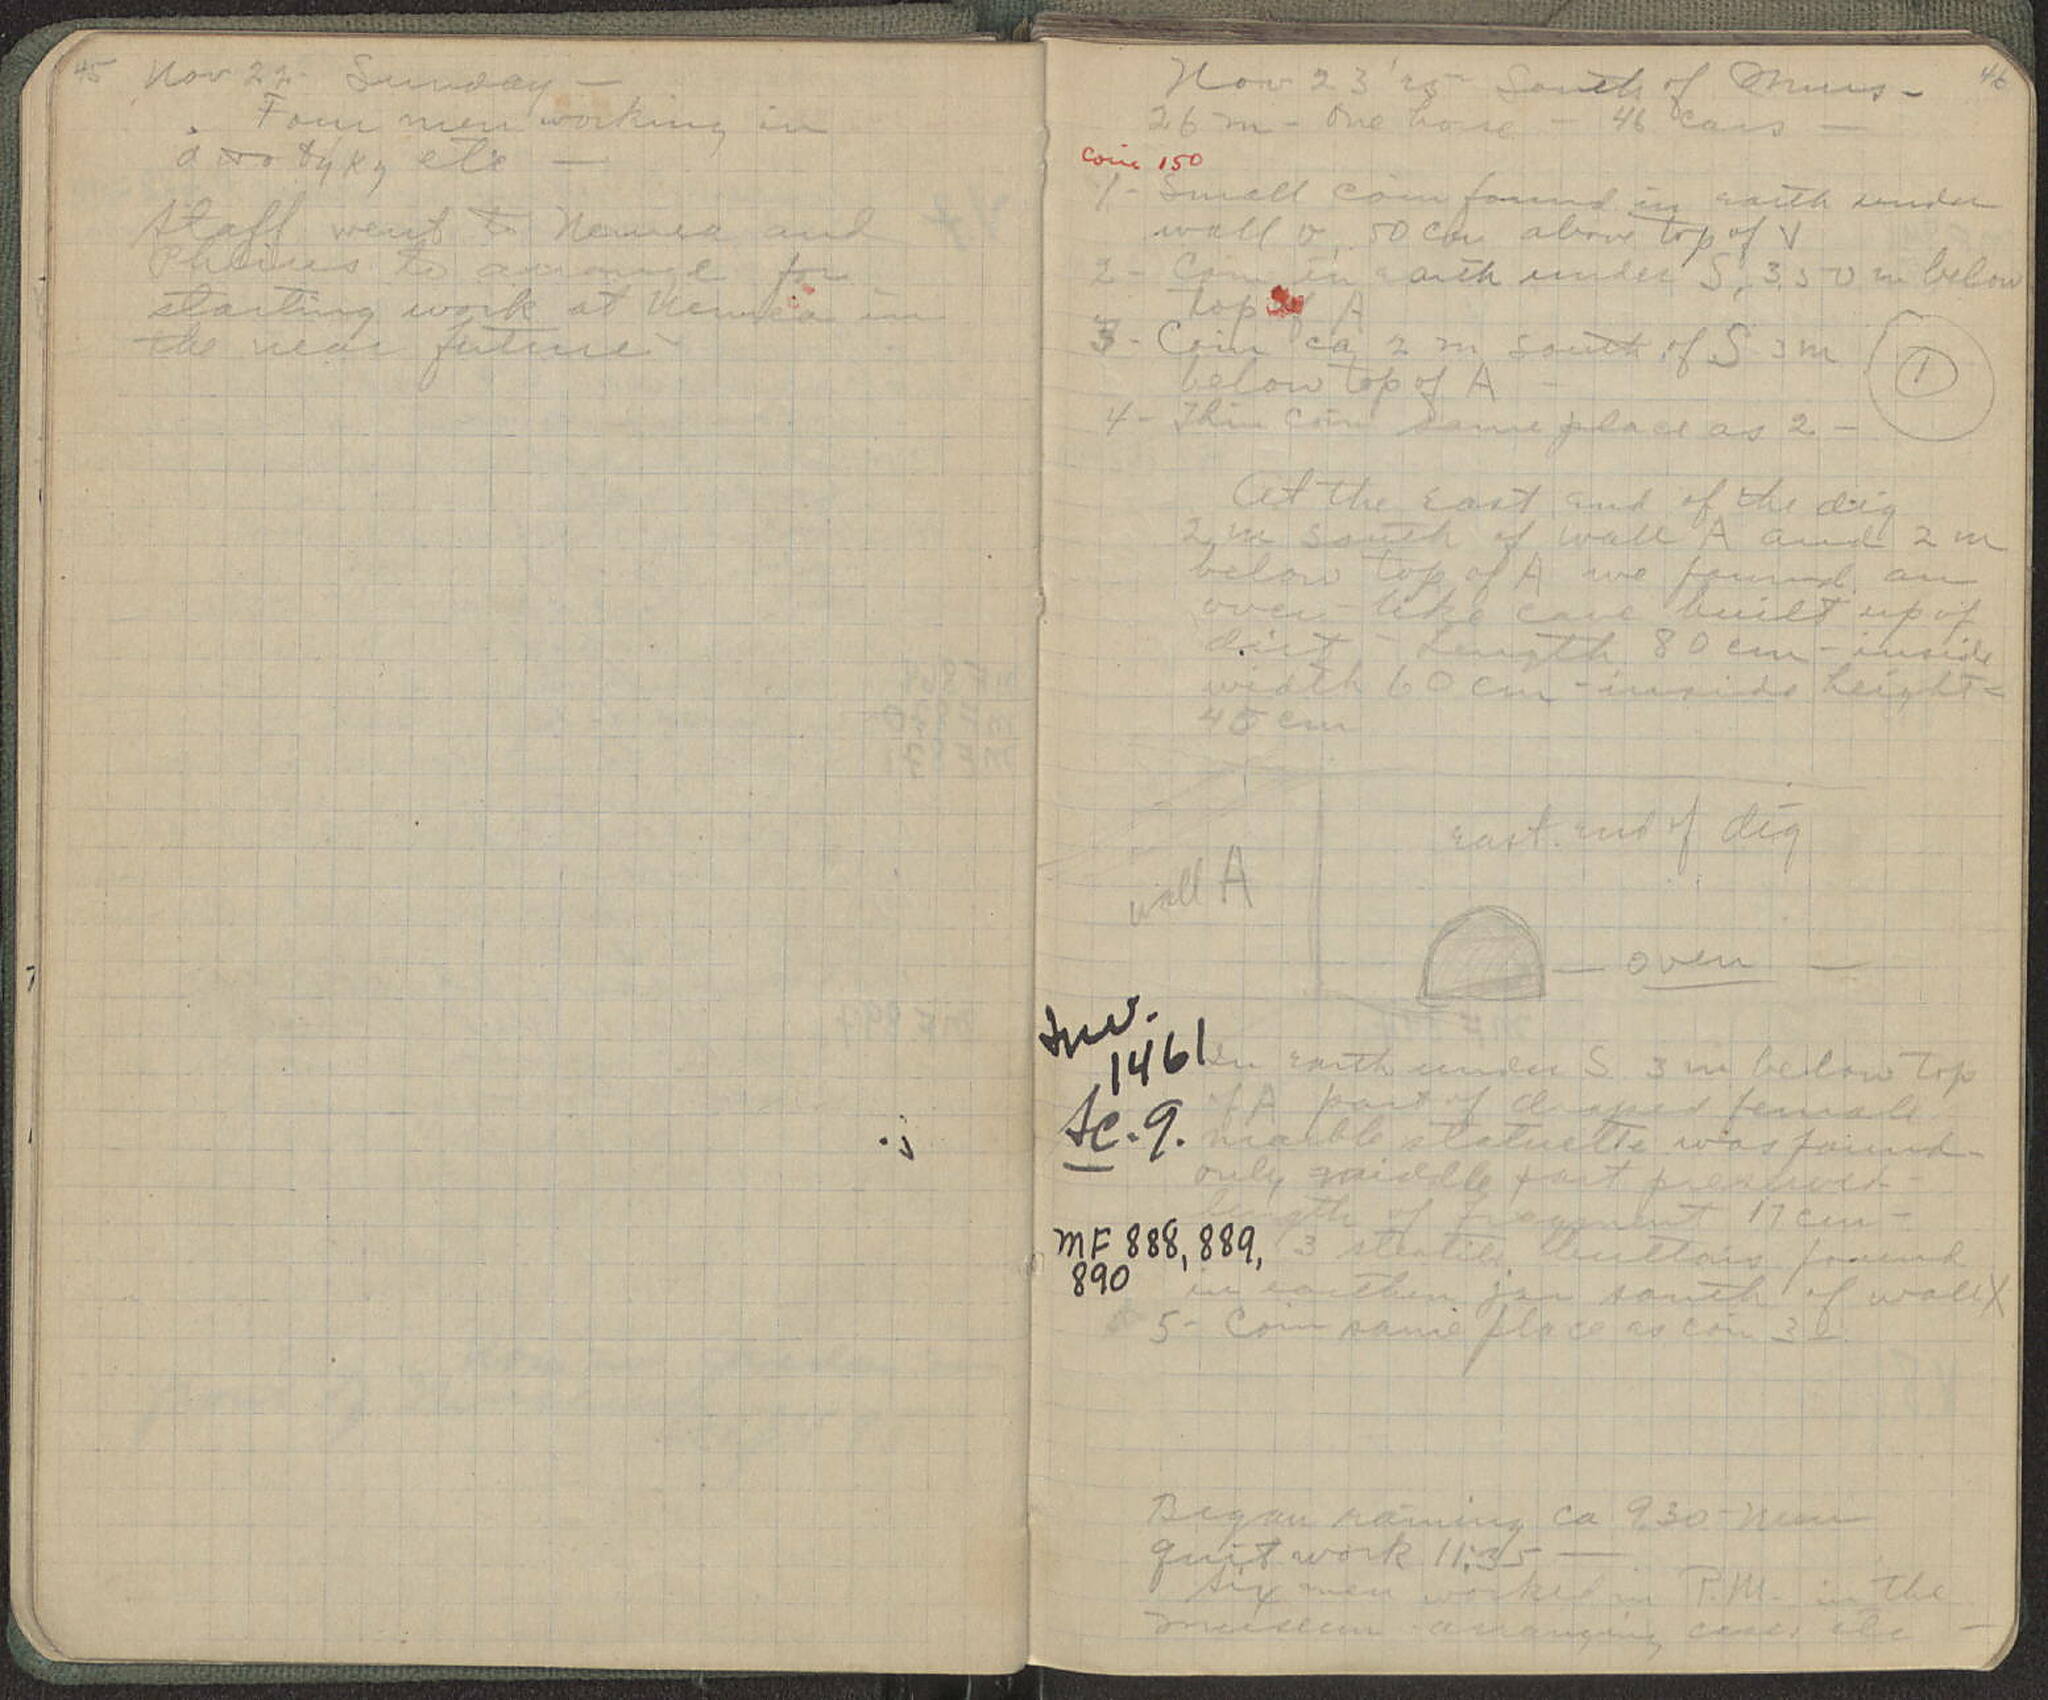 45 Nov 22 Sunday —
Four men working in
αποθήκη etc —
Staff went to Nemea and
Phlius to arrange for
starting work at Nemea in
the near future
46
Nov 23 '25 South of Mus. —
26 m — One horse — 46 cars —
Coin 150
1 - Small coin found in earth under
wall v, 50 cm above top of V
2 - Coin in earth under S, 3.50 m below
top of A
3 - Coin ca 2 m south of S 3 m
below top of A —
4 - Thin coin same place as 2 —
1
At the east end of the dig
2 m south of wall A and 2 m
below top of A we found an
oven-like cave built up of
dirt - Length 80 cm - inside
width 60 cm - inside height =
45 cm
east end of dig
wall A
— oven —
Inv.
1461
Sc. 9.
In earth under S 3 m below top
of A part of draped female
marble statuette was found —
only middle part preserved —
length of fragment 17 cm —
MF 888, 889,
890
3 steatite buttons found
in earthen jar south of wall X
5 - Coin same place as coin 3
Began raining ca 9.30 - Men
quit work 11:35 —
Six men worked in P.M. in the
museum arranging cases etc —